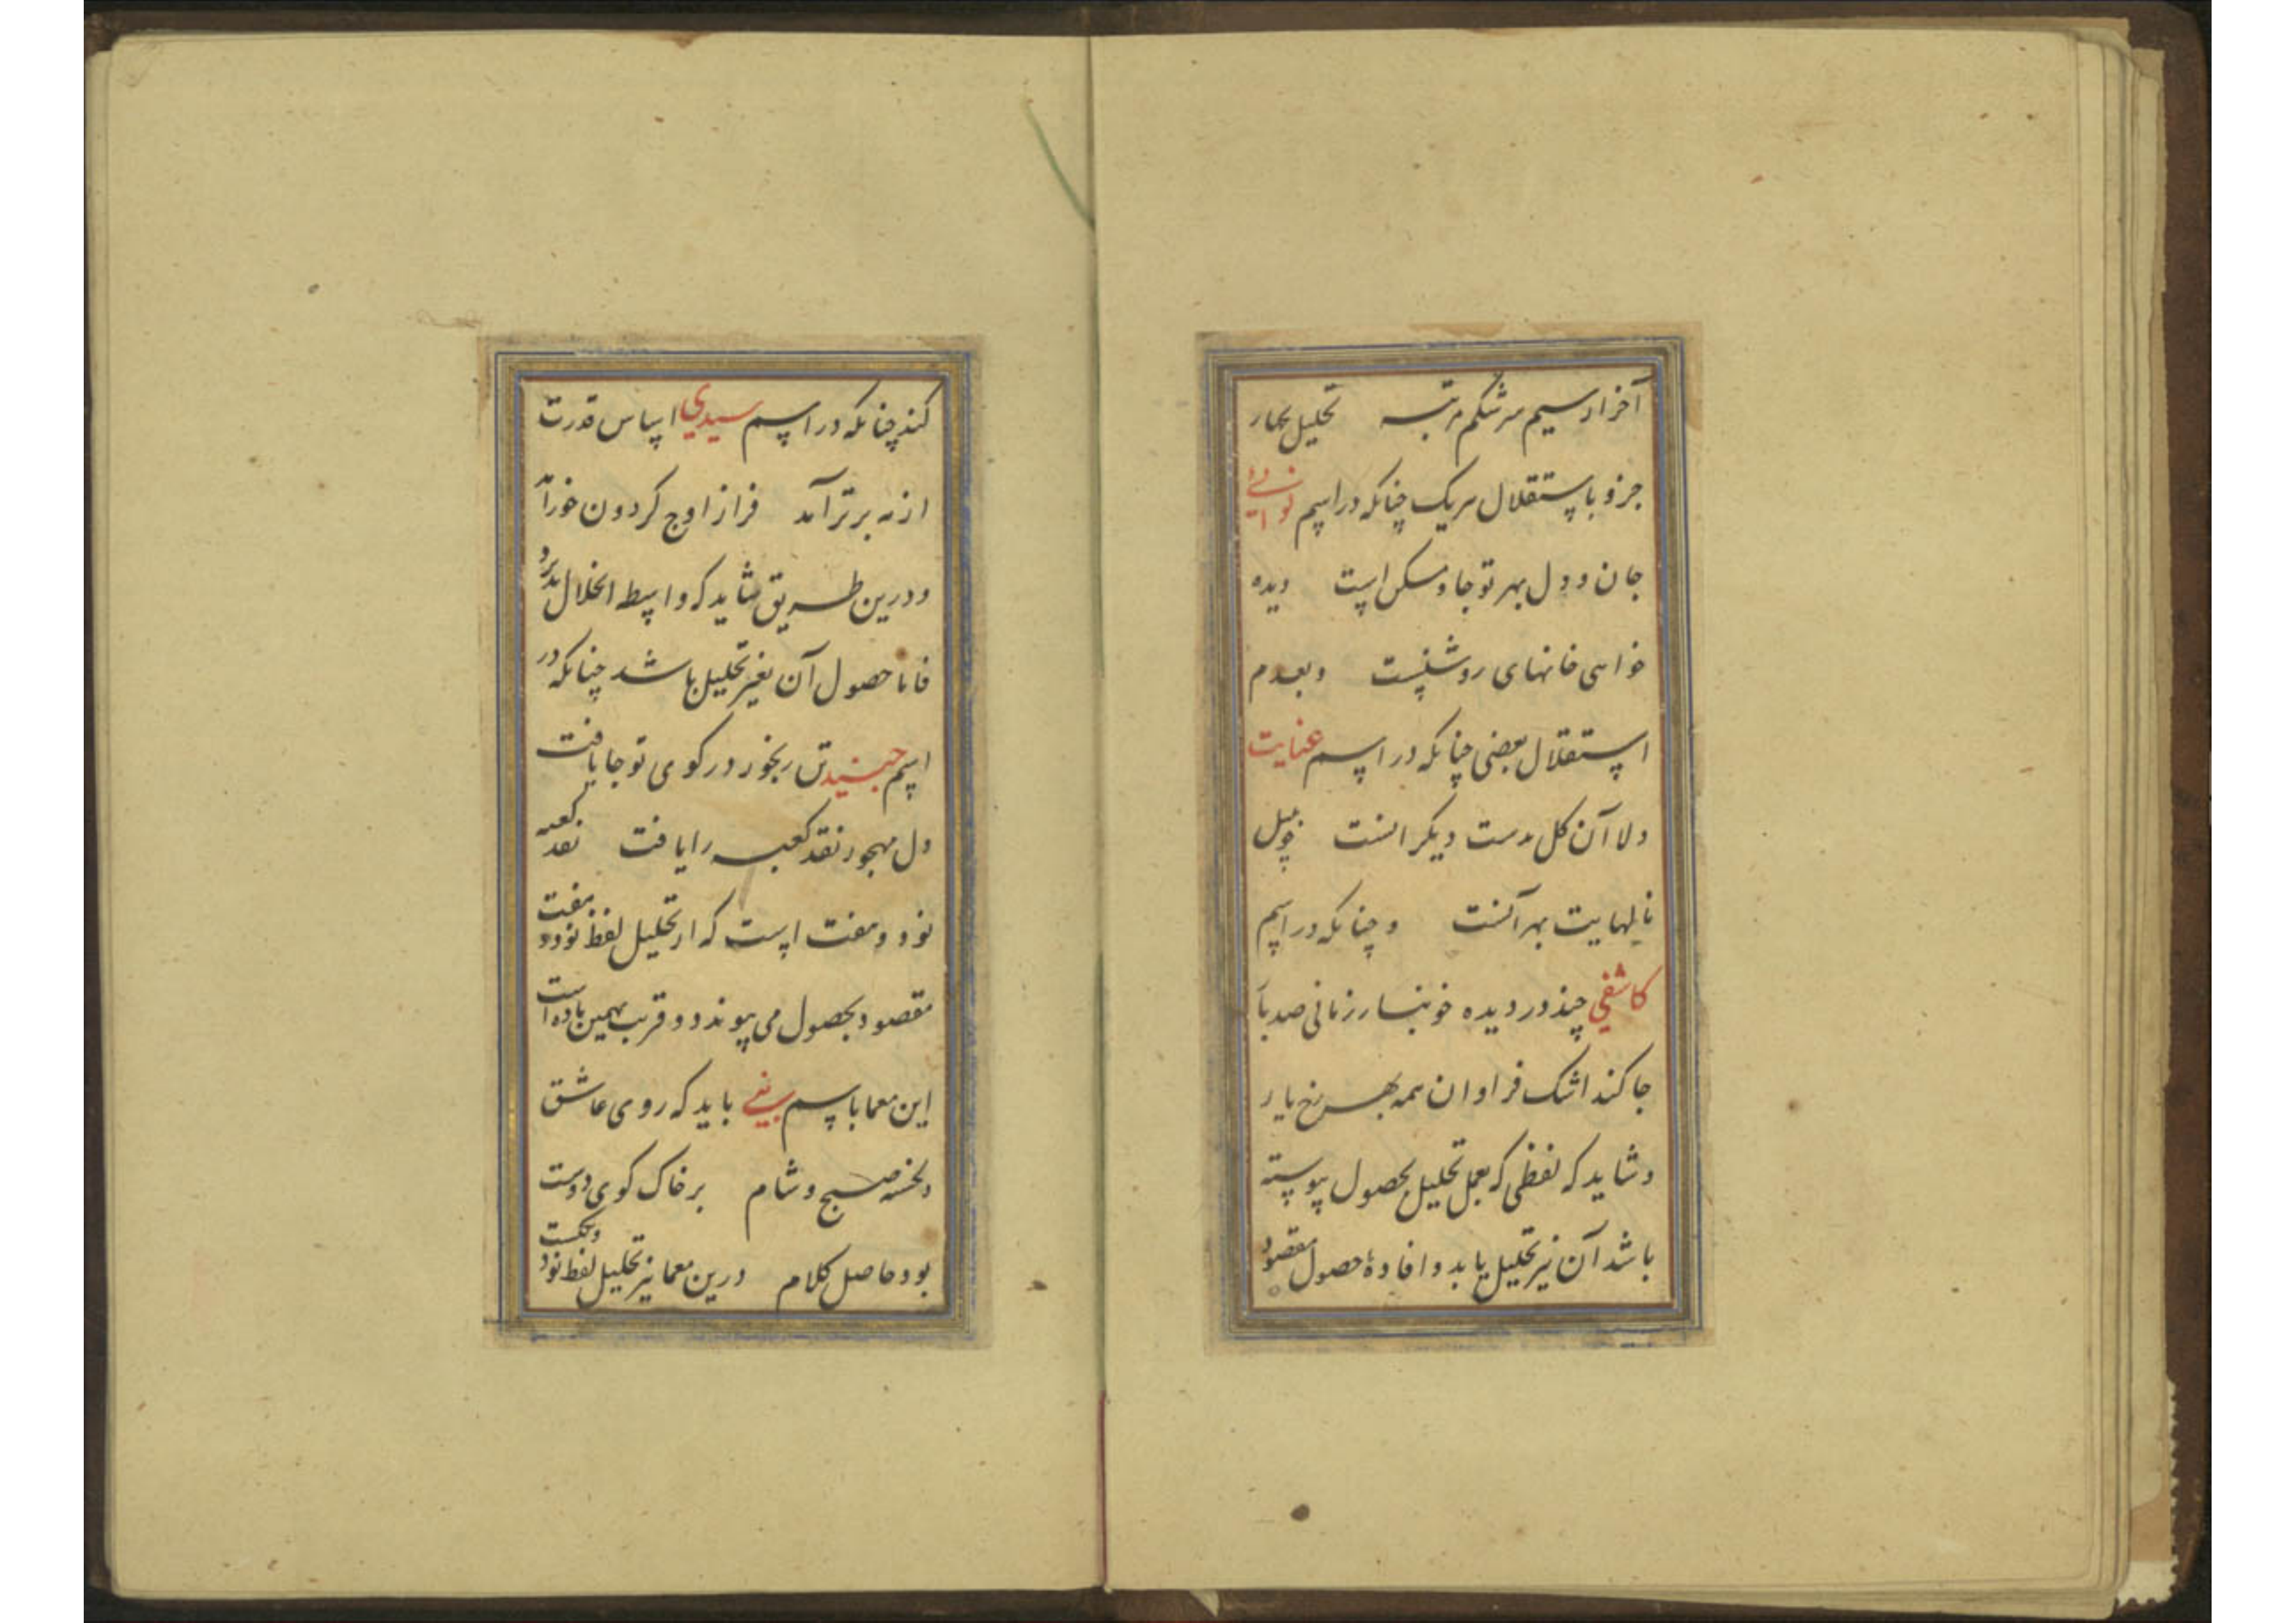 آخر از سیم سرشکم مرتبه تحلیل بچهار
جزو باستقلال هر یک چنانکه در اسم نورائی
جان و دل بهر تو جا و مسکن است دیده
خواهی خانهای روشنست و بعدم
استقلال بعضی چنانکه در اسم عنایت
دلا آن کل بدست دیگر انست چو بلبل
نالهایت بهر آنست و چنانکه در اسم
کاشفی چند در دیده خونبار زمانی صد بار
جا کند اشک فراوان همه بهر رخ یار
و شاید که لفظی که بعمل تحلیل بحصول پیوسته
باشد آن نیز تحلیل یابد و افادهٔ حصول مقصود
کند چنانکه در اسم سیدی اساس قدرت
از مه برتر آمد فراز اوج کردون خور آمد
و درین طریق شاید که واسطه انحلال پذیرد
فاما حصول آن بغیر تحلیل باشد چنانکه در
اسم جنید تن رنجور در کوی تو جا یافت
دل مهجور نقد کعبه را یافت نقد کعبه
نود و هفت است که از تحلیل لفظ نود و هفت
مقصود بحصول می پیوندد و قریب بهمین باده است
این معما باسم یفی باید که روی عاشق
دلخسته صبح و شام بر خاک کوی دوست
بود حاصل کلام درین معما نیز تحلیل لفظ نود